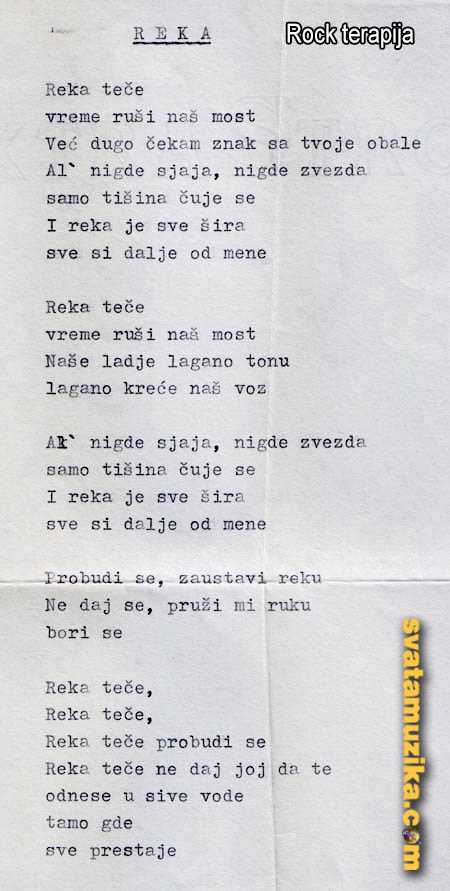 R E K A
Rock terapija
Reka teče
vreme ruši naš most
Već dugo čekam znak sa tvoje obale
Al` nigde sjaja, nigde zvezda
samo tišina čuje se
I reka je sve šira
sve si dalje od mene
Reka teče
vreme ruši naš most
Naše ladje lagano tonu
lagano kreće naš voz
Al` nigde sjaja, nigde zvezda
samo tišina čuje se
I reka je sve šira
sve si dalje od mene
Probudi se, zaustavi reku
Ne daj se, pruži mi ruku
bori se
Reka teče,
Reka teče,
Reka teče probudi se
Reka teče ne daj joj da te
odnese u sive vode
tamo gde
sve prestaje
svatamuzika.com